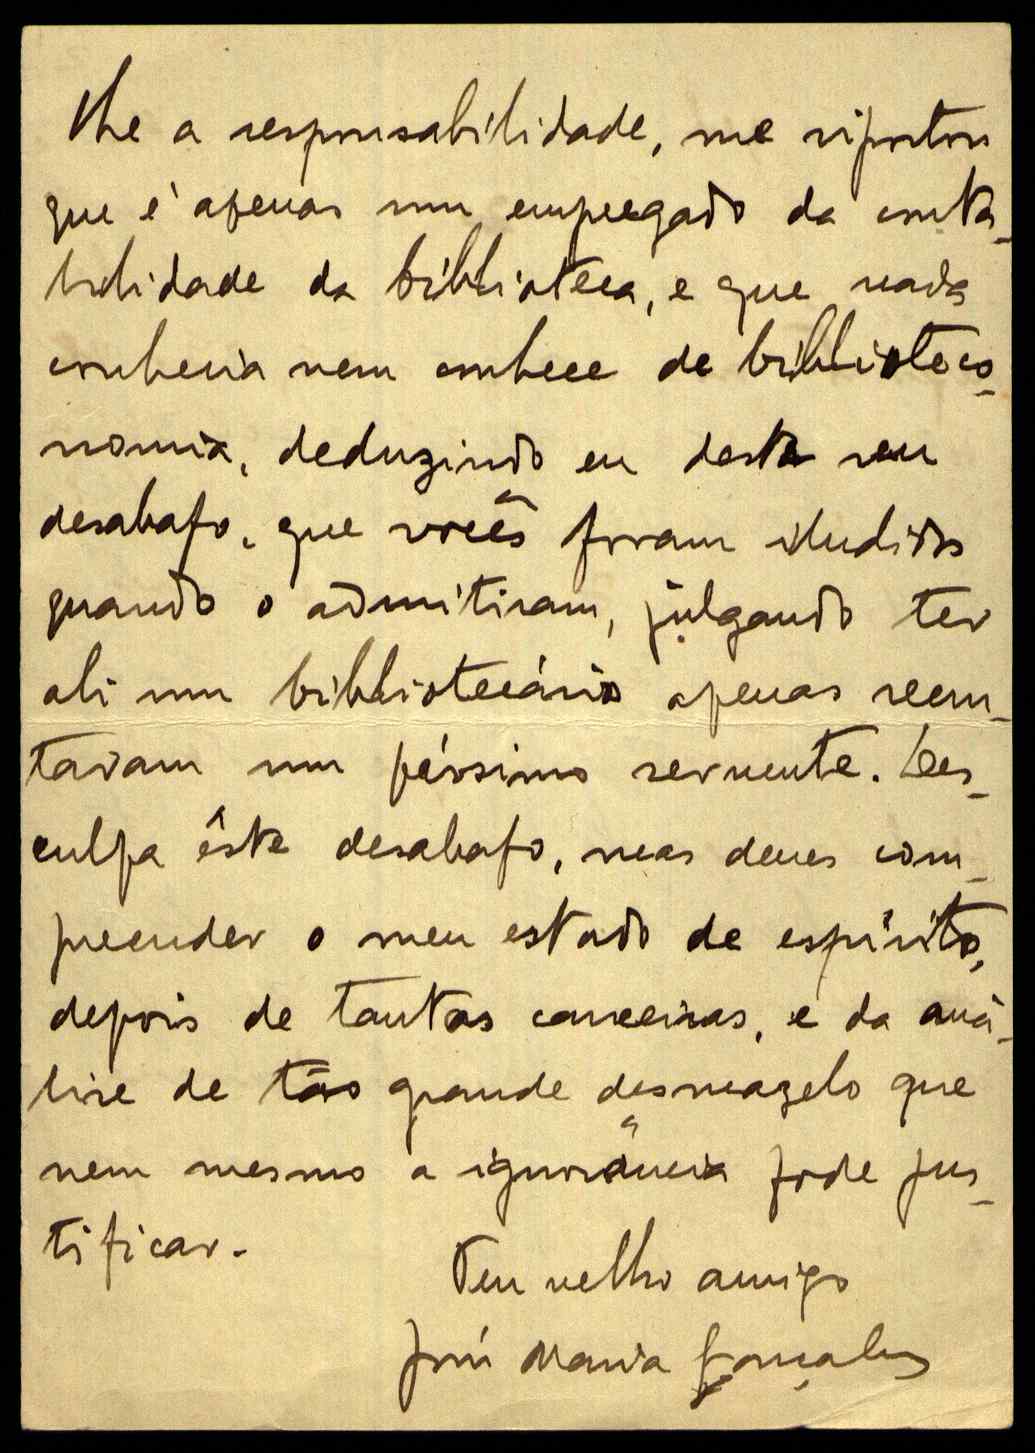 lhe a responsabilidade, me ripostou
que é apenas um empregado da conta-
bilidade da biblioteca, e que nada
conhecia nem conhece de biblioteco-
nomia, deduzindo eu deste seu
desabafo, que vocês foram iludidos
quando o admitiram, julgando ter
ali um bibliotecário apenas recru-
tavam um péssimo servente. Des-
culpa êste desabafo, mas deves com-
preender o meu estado de espírito,
depois de tantas canceiras, e da aná-
lise de tão grande desmazelo que
nem mesmo a ignorância pode jus-
tificar.
Teu velho amigo
José Maria Gonçalves